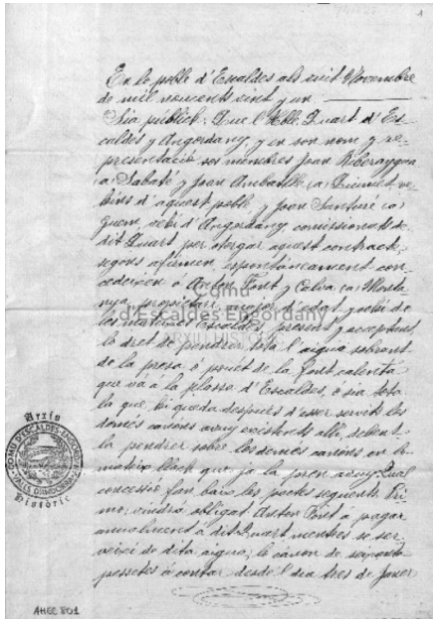 1
En lo poble d'Escaldes als vuit Novembre
de mil noucents vint y un
Sia públich: Que l'Hble. Quart d'Es-
caldes y Angordany, y en son nom y re-
presentació sos menbres Joan Riberaygua
(a) Sabaté y Joan Aubarell (a) Quimet, ve-
hins d'aquest poble y Joan Santuré (a)
vehi d'Angordany, comissionats de
dit Quart per otorgar aquest contracte,
segons afirmen, espontáneament con-
cedeixen á Anton Font y Calva (a) Mo
nya, propietari, major d'edat y vehi de
las mateixas Escaldes, present y acceptant,
lo dret de pendrer tota l'aigua sobrant
de la presa ó pouét de la Font calenta
que va a la filassa d'Escaldes, ó sia tota
la que hi queda després d'esser servits los
demés canons avuy existents allí, debent-
la pendrer sobre los demés canons en lo
mateix lloch que ja la pren avuy. Qual
concessió fan baix los pactes seguents: Pri-
mo, vindrá obligat Anton Font á pagar
anualment á dit Quart mentres se ser-
veixi de dita aigua, lo cánon de seixanta
pessetes á contar desde l dia tres de Janer
Comú
d'Escaldes Engordany
ARXIU HISTÒRIC
Arxiu
COMU D'ESCALDES-ENGORDANY
VALLS D'ANDORRA
Històric
AHCE 801